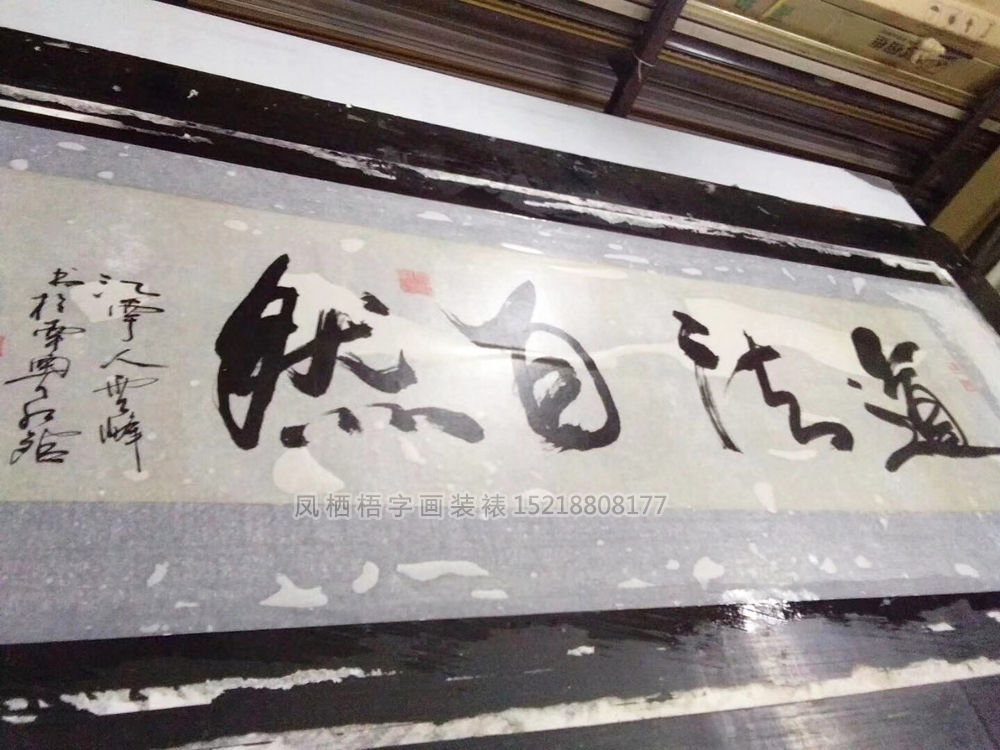 道法自然
江寧人雲峰
书於南粤
凤栖梧字画装裱 15218808177